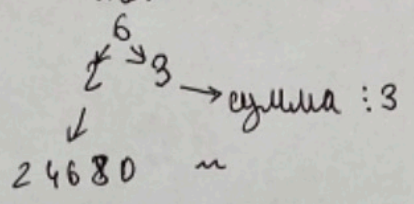 6
2 3 → сумма ⋮3
2 4 6 8 0 ~